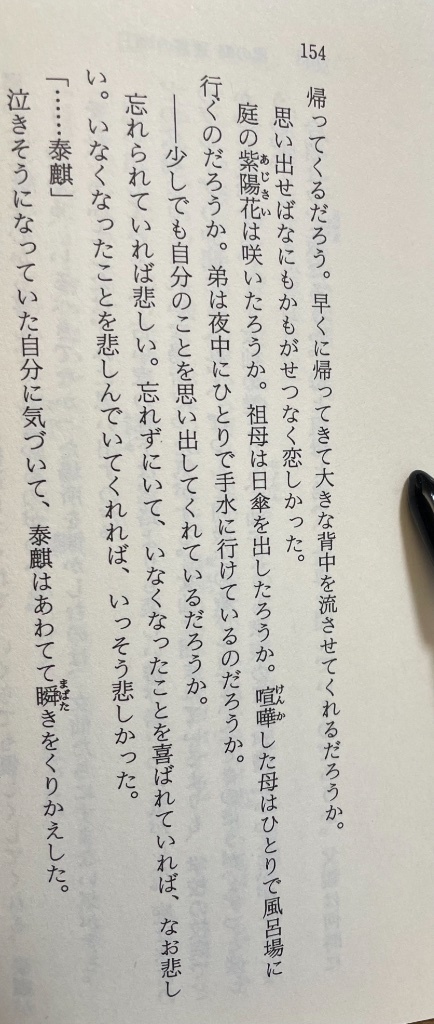 154
帰ってくるだろう。早くに帰ってきて大きな背中を流させてくれるだろうか。
思い出せばなにもかもがせつなく恋しかった。
庭の紫陽花は咲いたろうか。祖母は日傘を出したろうか。喧嘩した母はひとりで風呂場に
行くのだろうか。弟は夜中にひとりで手水に行けているのだろうか。
――少しでも自分のことを思い出してくれているだろうか。
忘れられていれば悲しい。忘れずにいて、いなくなったことを喜ばれていれば、なお悲し
い。いなくなったことを悲しんでいてくれれば、いっそう悲しかった。
「……泰麒」
泣きそうになっていた自分に気づいて、泰麒はあわてて瞬きをくりかえした。